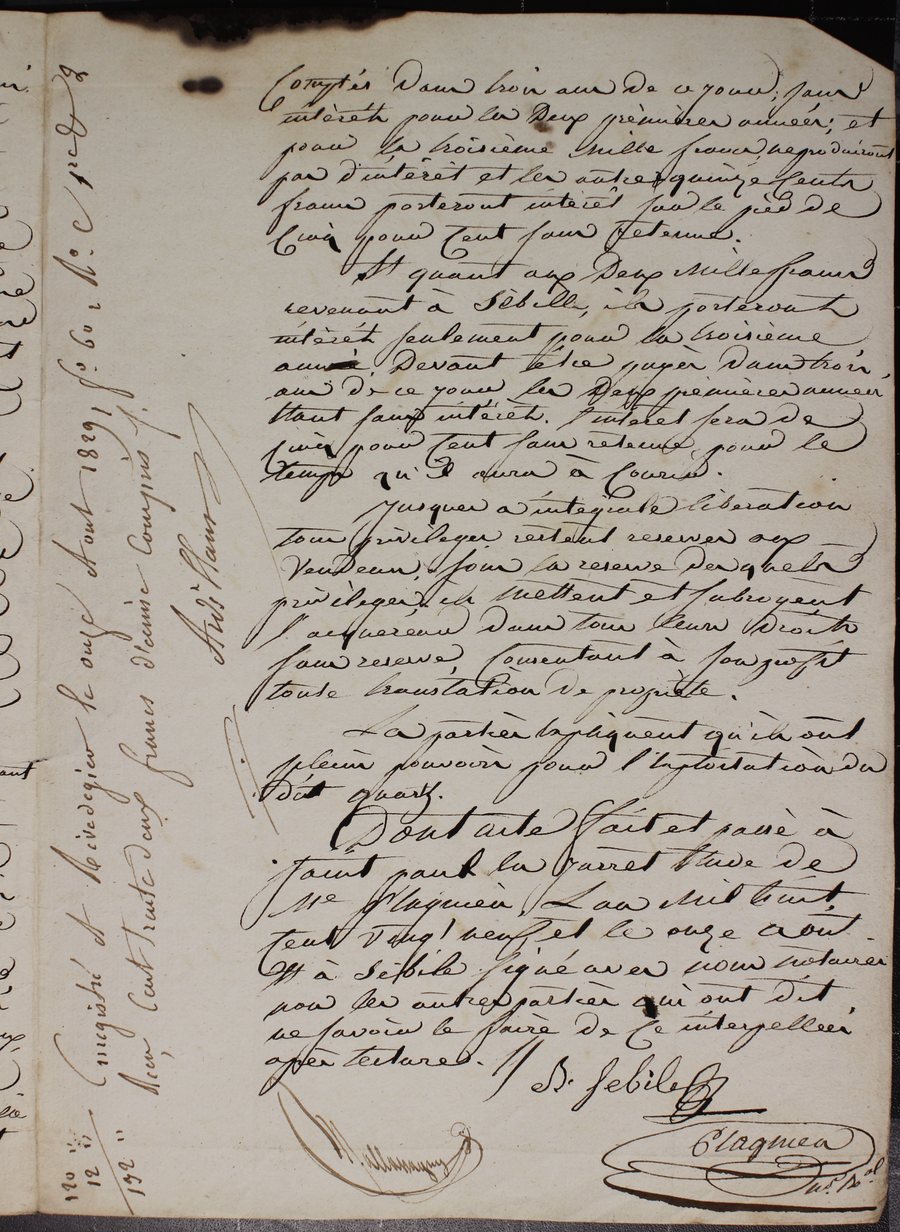 Comptés Dans trois ans de ce jour, sans
intérêts pour les Deux premières années; et
pour la troisième Mille francs ne produiront
pas d'intérêt et les autres quinze Cents
francs porteront intérêt sur le pied de
Cinq pour Cent sans retenue.
Et quant aux Deux Mille francs
revenant à Sébille, ils porteront
intérêts seulement pour la troisième
année, Devant être payés Dans trois
ans de ce jour les Deux premières années
étant sans intérêts. l'intérêt sera de
Cinq pour Cent sans retenue, pour le
temps qu'il aura à Courir.
Jusques a intégrale libération
tous privilèges restent reservés aux
Vendeurs, sous la reserve desquels
privilèges, ils mettent et subrogent
l'acquereur Dans tous leurs Droits
sans reserve, Consentant à son profit
toute translation de propriété.
Les parties expliquent qu'ils ont
plein pouvoir pour l'exploitation du
dit quart.
Dont acte fait et passé à
Saint paul en jarret Etude de
Me Plagnieu, L'an Mil huit
Cent Vingt neuf, et le onze aout
Et à Sébile signé avec nous Notaires
non les autres parties qui ont dit
ne savoir le faire de Ce interpellées
après lecture. //
B. Sebile
Plagnieu
Enregistré à Rivedegier le onze Aout 1829, fo. 60 Ro. C 1re &
Reçu Cent trente deux francs dixième Compris
120 "
12 "
132 "